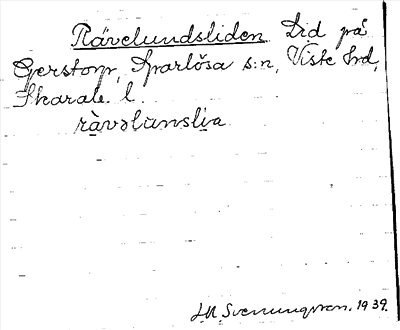 Rävelundsliden Lid på
Gerstorp, Sparlösa s:n, Viste hrd,
Skarab. l.
rävəlunslia
J.A. Svenungsson. 1939.